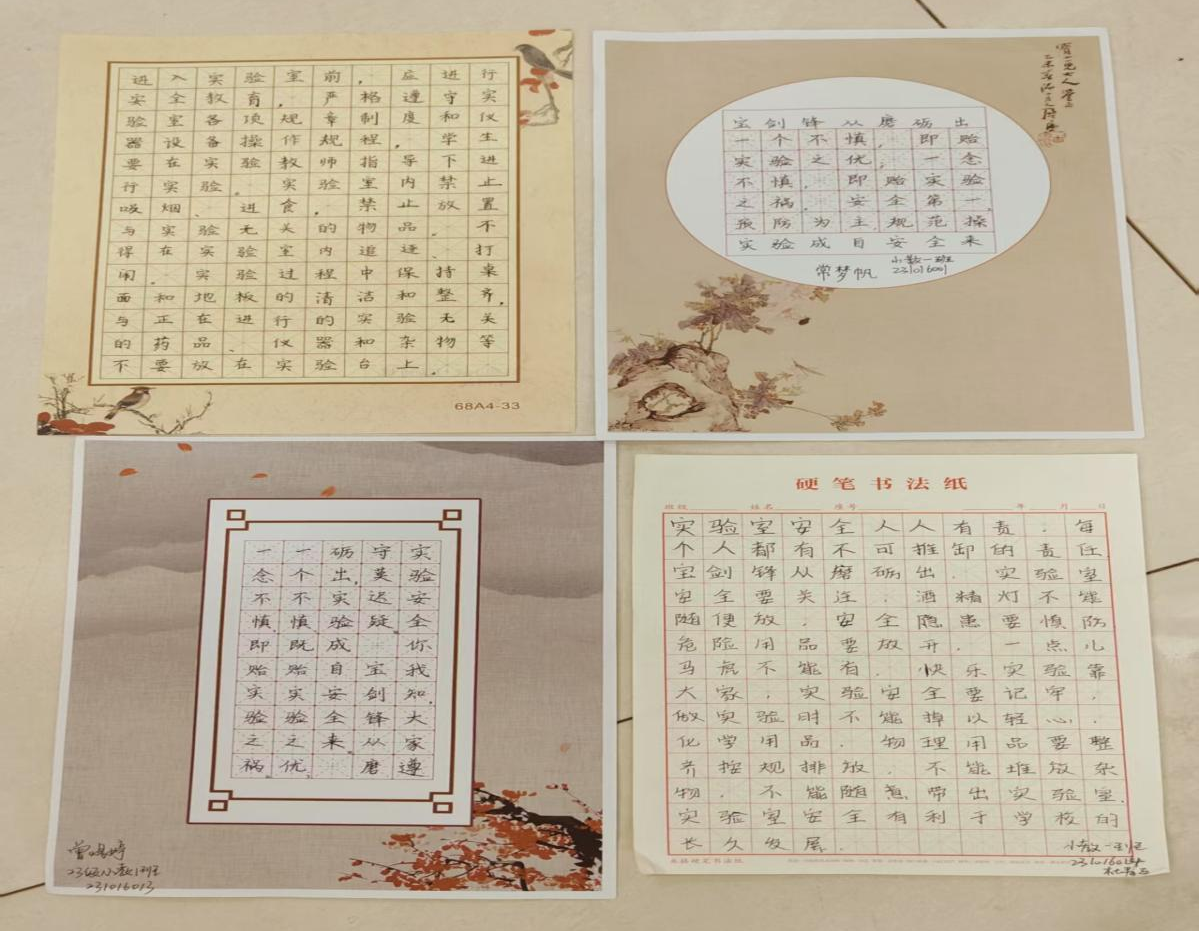 进入实验室前，应进行
安全教育，严格遵守实
验室各项规章制度和仪
器设备操作规程，学生
要在实验教师指导下进
行实验。实验室内禁止
吸烟、进食，禁止放置
与实验无关的物品。不
得在实验室内追逐、打
闹。实验过程中保持桌
面和地板的清洁和整齐，
与正在进行的实验无关
的药品、仪器和杂物等
不要放在实验台上。
68A4-33
宝剑锋从磨砺出
一个不慎，即贻
实验之优；一念
不慎，即贻实验
之祸，安全第一，
预防为主，规范操
实验成自安全来
小教一班
常梦帆 231016001
实验安全你我知，大家遵
守莫迟疑。宝剑锋从磨
砺出，实验成自安全来。
一个不慎，既贻实验之优，
一念不慎，即贻实验之祸。
23级小教1班
231016013
硬笔书法纸
班级 姓名 座号 年 月 日
实验室安全人人有责，每
个人都有不可推卸的责任
宝剑锋从磨砺出，实验室
安全要关注，酒精灯不能
随便放，安全隐患要慎防
危险用品要放开，一点儿
马虎不能有，快乐实验靠
大家，实验安全要记牢，
做实验时不能掉以轻心，
化学用品，物理用品要整
齐按规排放，不能堆放杂
物，不能随意带出实验室，
实验室安全有利于学校的
长久发展．
小教一班